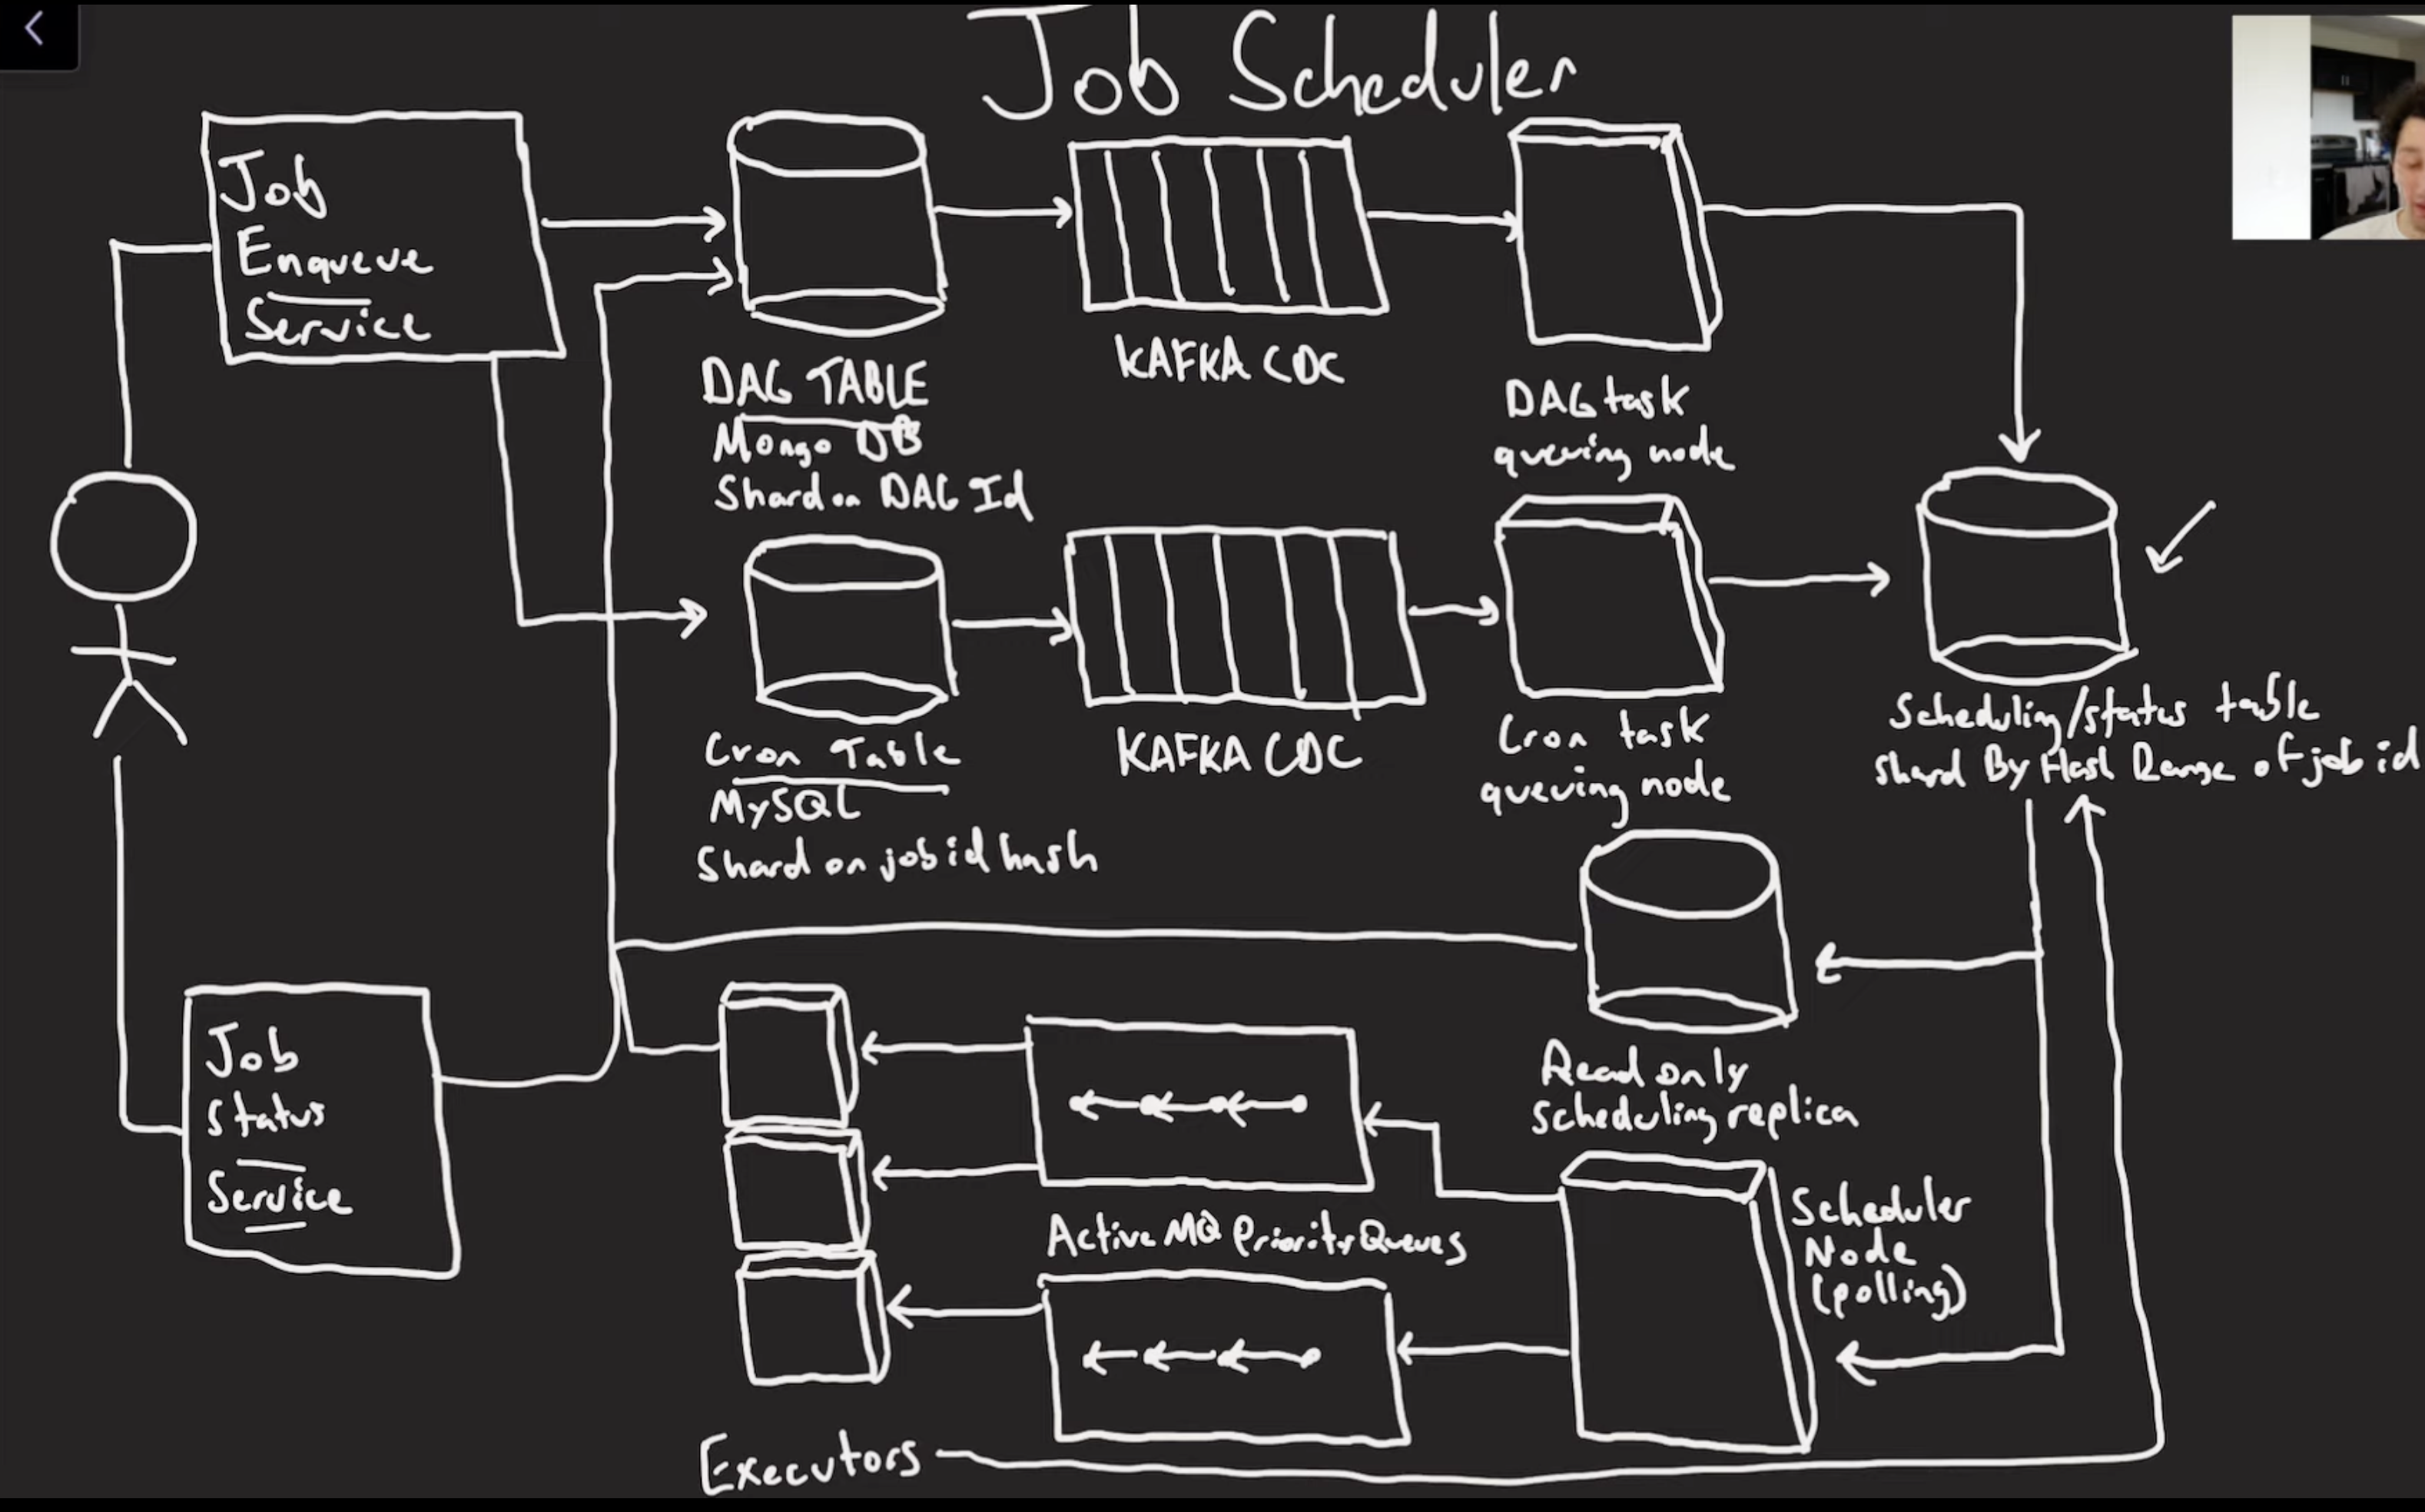 Job Scheduler
Job
Enqueue
Service
DAG TABLE
Mongo DB
Shard on DAG Id
KAFKA CDC
DAG task
queuing node
Cron Table
MySQL
Shard on job id hash
KAFKA CDC
Cron task
queuing node
Scheduling/status table
shard By Hash Range of job id
Job
Status
Service
Read only
scheduling replica
Active MQ Priority Queues
Scheduler
Node
(polling)
Executors